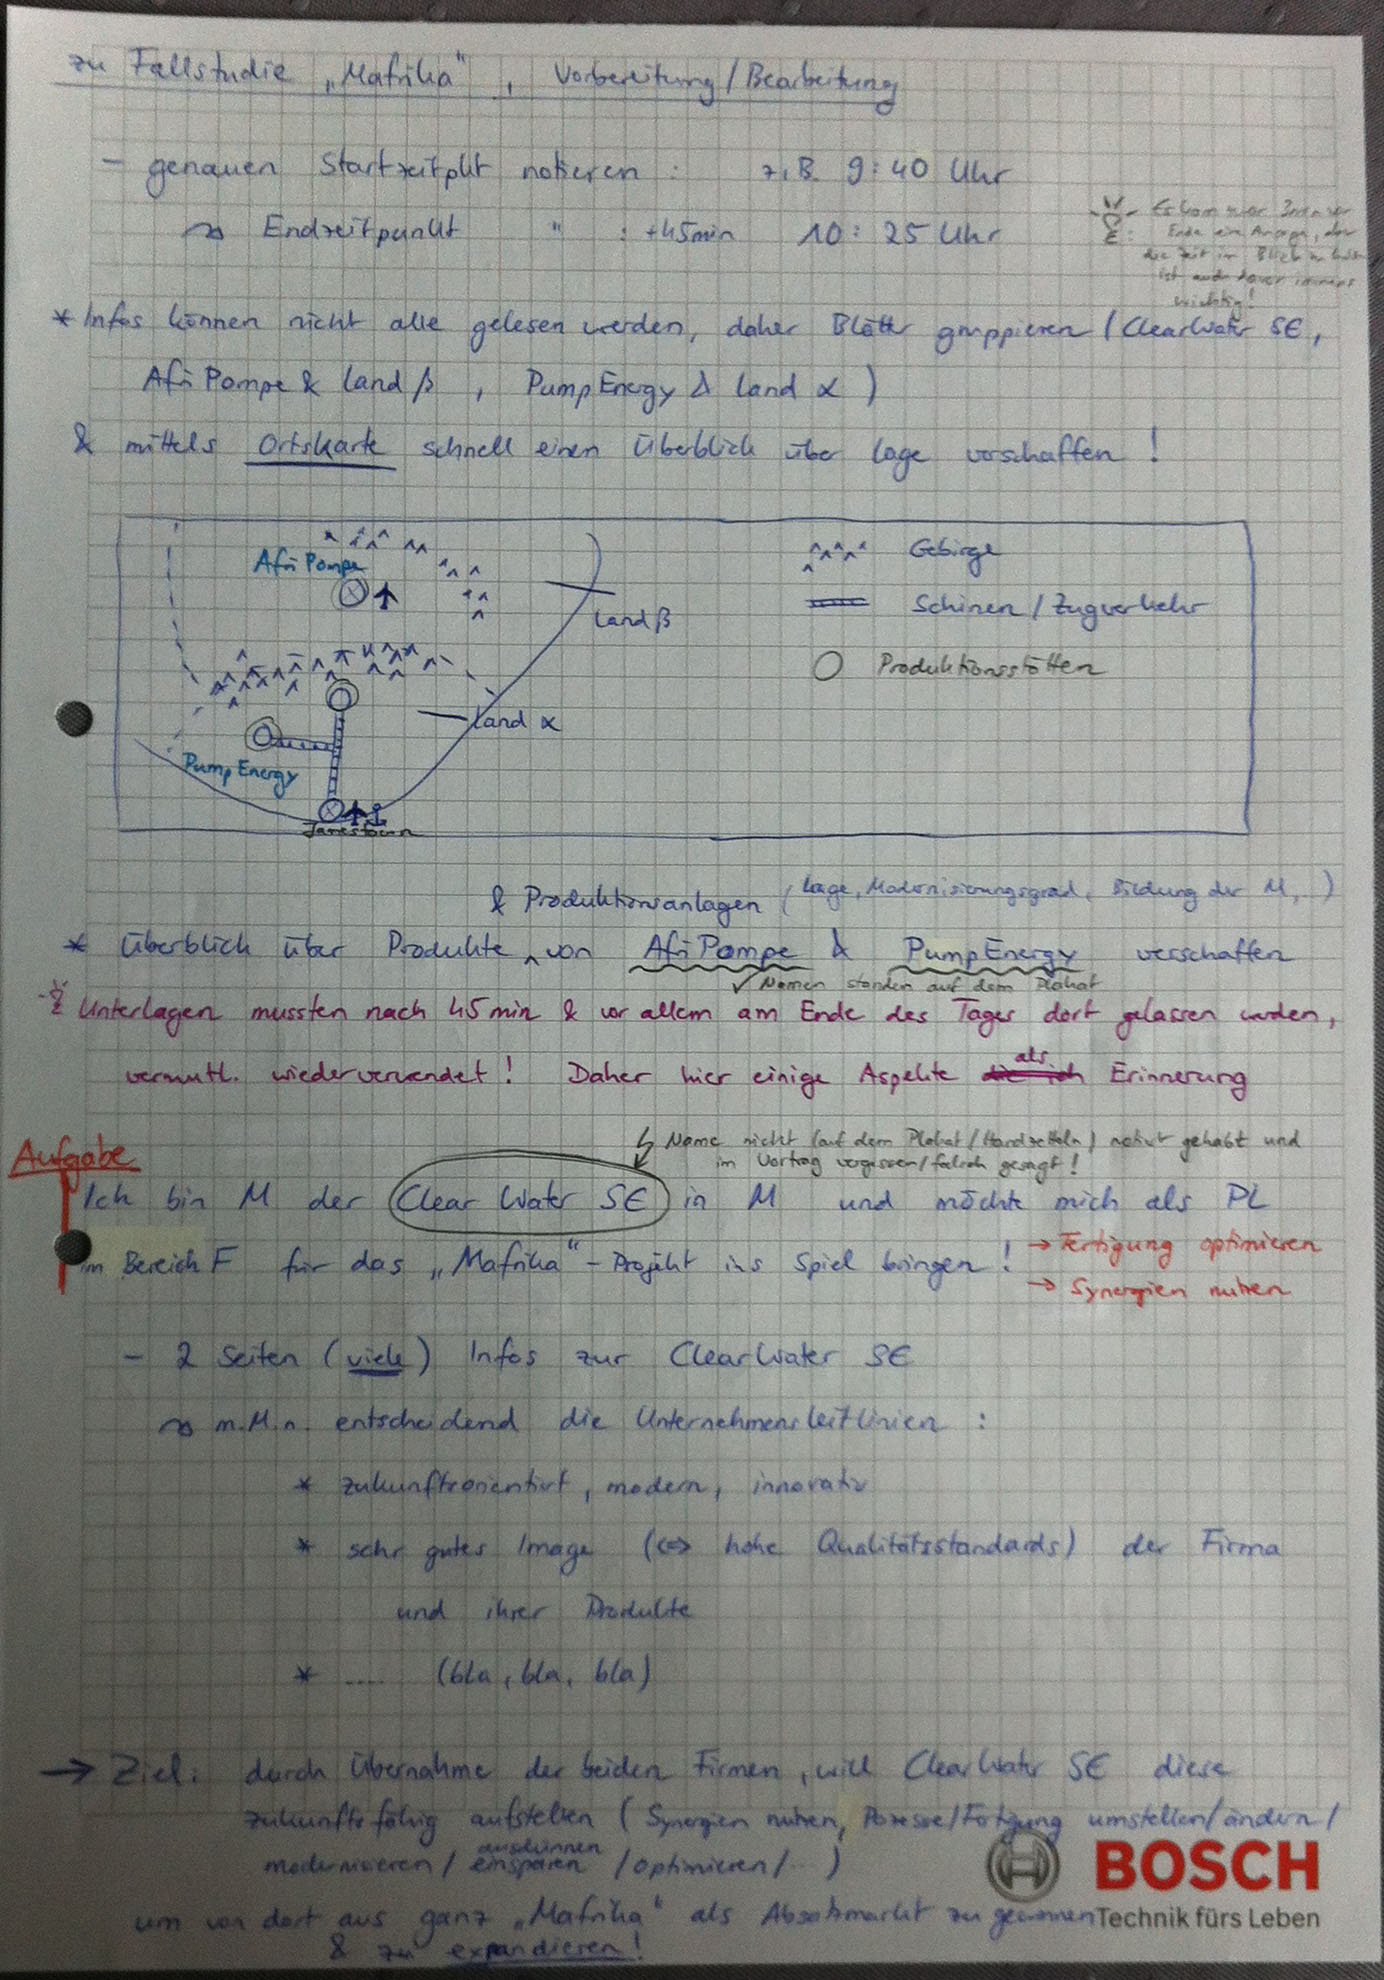 zu Fallstudie „Mafrika“, Vorbereitung/Bearbeitung
- genauen Startzeitpkt notieren : z.B. 9:40 Uhr
Endzeitpunkt " : +45min 10:25 Uhr
Es kam zwar 3min vor
Ende eine Ansage, aber
die Zeit im Blick zu haben
ist auch immer
wichtig!
* Infos können nicht alle gelesen werden, daher Blätter gruppieren (ClearWater SE,
AfriPompe & Land β, PumpEnergy & Land α)
& mittels Ortskarte schnell einen Überblick über Lage verschaffen!
AfriPompe
Land β
Land α
PumpEnergy
Jamestown
Gebirge
Schinen/Zugverkehr
Produktionsstätten
& Produktionsanlagen (Lage, Modernisierungsgrad, Bildung der M, )
* Überblick über Produkte von AfriPompe & PumpEnergy verschaffen
✓ Namen standen auf dem Plakat
Unterlagen mussten nach 45min & vor allem am Ende des Tages dort gelassen werden,
vermutl. wiederverwendet! Daher hier einige Aspekte als Erinnerung
Name nicht (auf dem Plakat/Handzetteln) notiert gehabt und
im Vortrag vergessen/falsch gesagt!
Aufgabe
Ich bin M der Clear Water SE in M und möchte mich als PL
im Bereich F für das „Mafrika“-Projekt ins Spiel bringen!
→ Fertigung optimieren
→ Synergien nutzen
- 2 Seiten (viele) Infos zur ClearWater SE
m.M.n. entscheidend die Unternehmensleitlinien :
* zukunftsorientiert, modern, innovativ
* sehr gutes Image (⇔ hohe Qualitätsstandards) der Firma
und ihrer Produkte
* .... (bla, bla, bla)
→ Ziel: durch Übernahme der beiden Firmen, will ClearWater SE diese
zukunftsfähig aufstellen (Synergien nutzen, Prozesse/Fertigung umstellen/ändern/
ausdünnen
modernisieren/einsparen/optimieren/...)
um von dort aus ganz „Mafrika“ als Absatzmarkt zu gewinnen
& zu expandieren!
BOSCH
Technik fürs Leben